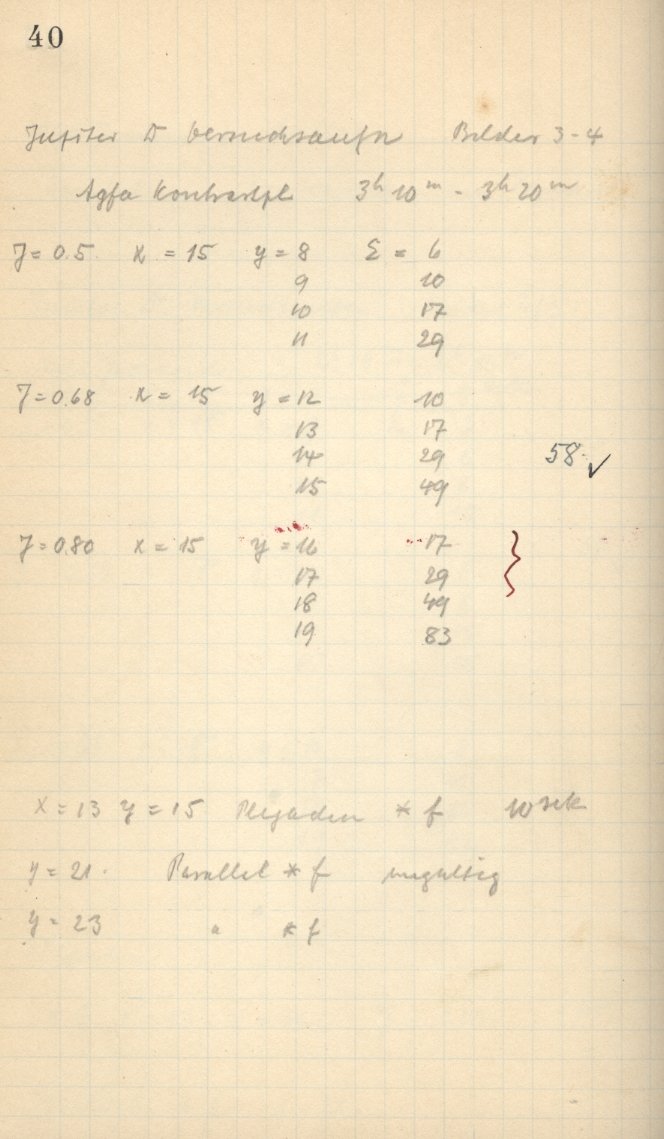 40
Jupiter Bilder 3-4
Agfa Kontrastpl 3h 10m - 3h 20m
J = 0.5 x = 15 y = 8 Σ = 6
9 10
10 17
11 29
J = 0.68 x = 15 y = 12 10
13 17
14 29 58 ✓
15 49
J = 0.80 x = 15 y = 16 17
17 29
18 49
19 83
x = 13 y = 15 Plejaden * f 10 sek
y = 21. Parallel * f ungültig
y = 23 " * f